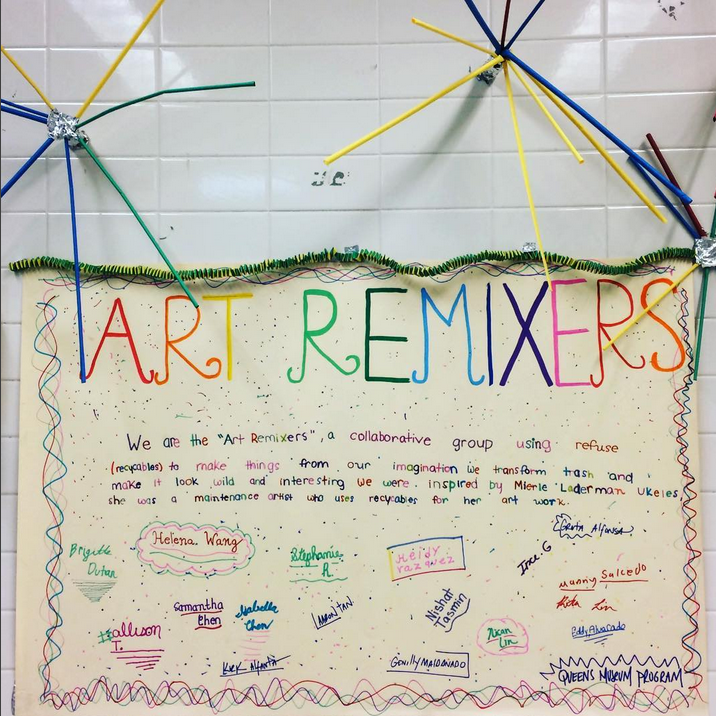 ART REMIXERS
We are the "Art Remixers", a collaborative group using refuse
(recycables) to make things from our imagination we transform trash and
make it look wild and interesting we were inspired by Mierle Laderman Ukeles,
she was a maintenance artist who uses recycables for her art work.
Brigitte
Helena Wang
Stephanie
R.
Heidy
Vazquez
Alfonso
Irnee. G
Manny Salcedo
Rita Lin
Samantha
Chen
Isabella
Chen
AARON TAN
Nishat
Tasmin
allison
T.
Lin
Eddy Alvarado
MALDONADO
QUEENS MUSEUM PROGRAM